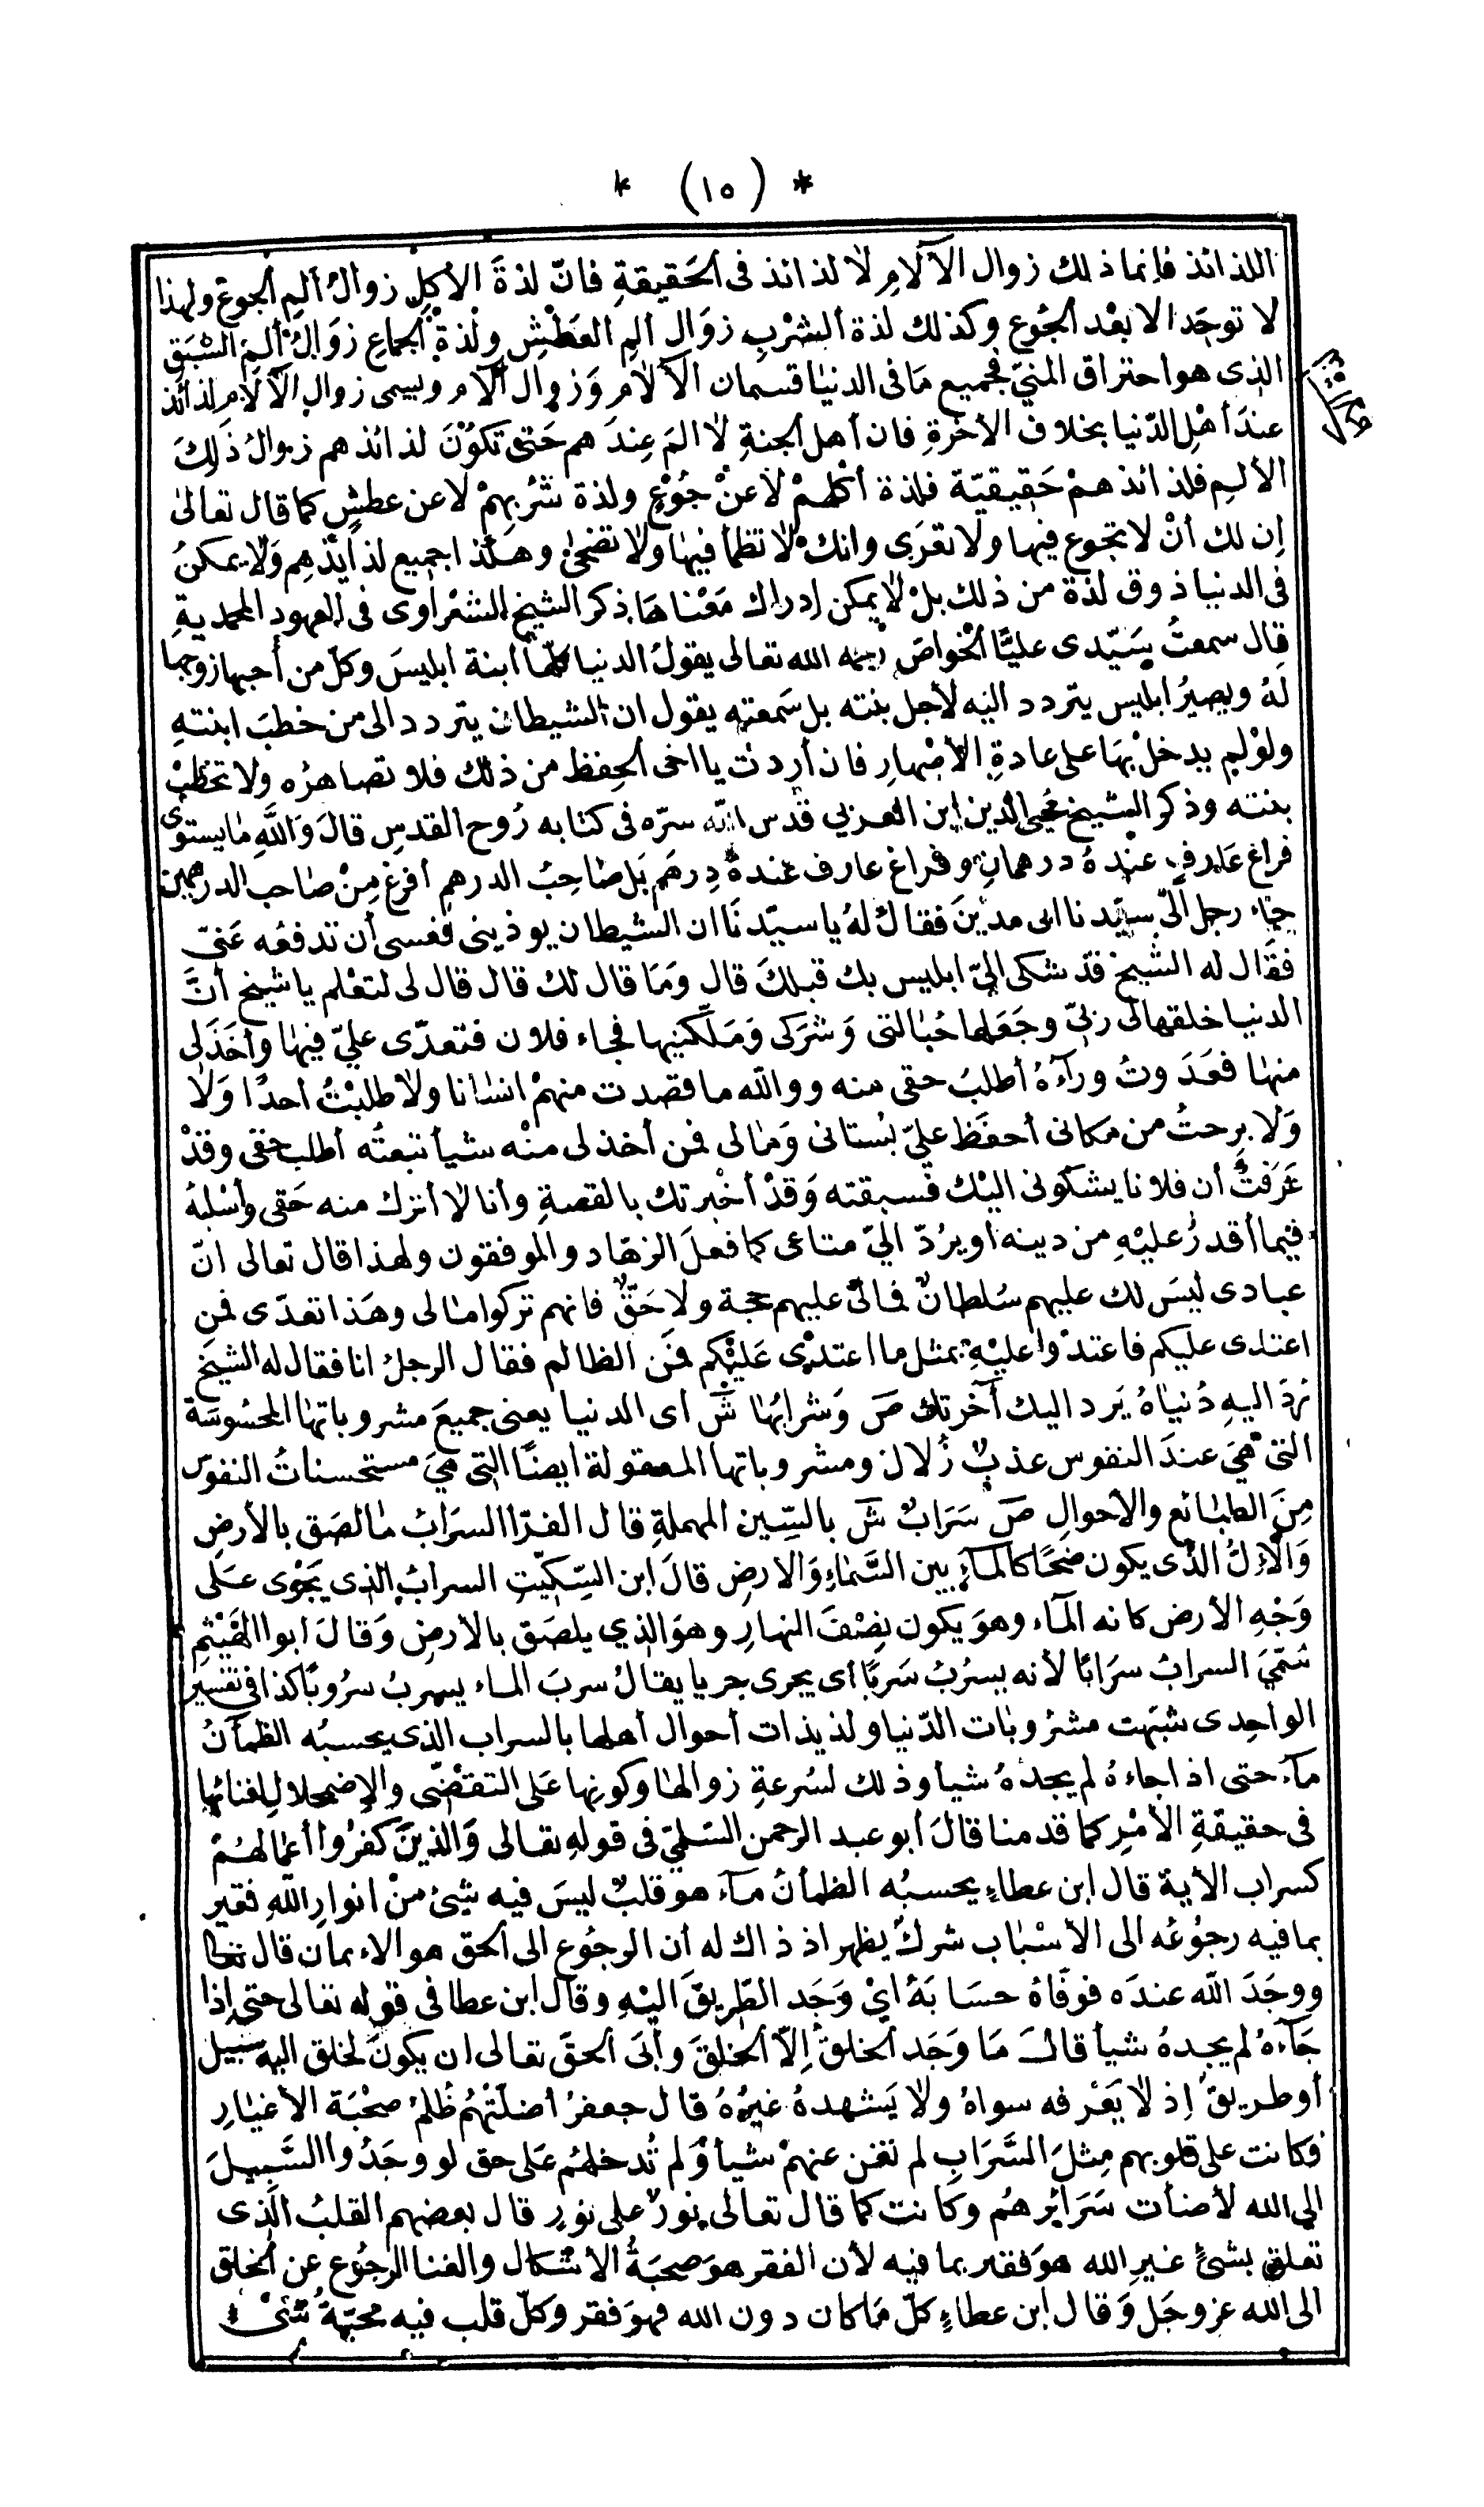 * (١٥) *
اللذائذ فإنما ذلك زوال الآلام لا لذائذ فى الحَقيقةِ فانّ لذةَ الأكلِ زوالُ ألمِ الجوع ولهذا
لا توجَد الا بعْد الجُوع وكذلك لذة الشرْبِ زوَال ألم العَطْشِ ولذة الجماعِ زوَالُ ألمَ الشبَق
الذى هو احتراق المنيّ فجميع مَا فى الدنيا قسمان الآلام وَزوال آلام ويسمى زوال الآلام لذائذ
عندَ أهْلِ الدّنيا بخلاف الأخرةِ فان أهل الجنةِ لا المَ عِندَ هم حَتى تكوُنَ لذائذهم زوالُ ذَلِكَ
الألم فلذائذهمْ حَقيقيّة فلذة أكلهمْ لا عنْ جُوْعٍ ولذة شُرْبهِمْ لا عن عطشٍ كما قال تعالى
إن لك أنْ لا تجوع فيها ولا تعْرَى وانك لا تظمأ فيها ولا تضحىٰ وهكذا جميع لذايَذهم وَلا يمكنُ
فى الدنيا ذوق لذة من ذلك بلْ لا يمكن إدراك مَعْناهَا ذكر الشيخ الشعراوى فى العهود المحمديةِ
قال سمعتُ سَيّدى عليّا الخواصَ رحمه الله تعالى يقولُ الدنيا كلها ابنة ابليسَ وكلّ من أحبها زوجها
لهُ ويصيرُ ابليس يتردد اليه لأجل بنته بل سَمعته يقول ان الشيطان يتردد الى من خطبَ ابنتهِ
ولوْ لم يدخلْ بهَا على عادةِ الأصْهارِ فان أردت يا اخى الحِفظ من ذلك فلا تصاهرُه ولا تخطبْ
بنته وذكر الشيخ محيى الدين ابن العربي قدس الله سرّه فى كتابه رُوح القدسِ قالَ وَاللهِ ما يستوى
فراغ عَارف عندهُ درهمانِ وفراغ عارف عندهُ دِرهَم بَل صَاحِبُ الدرهم أفرغ مِنْ صاحب الدرهمين
جَاء رجل الىّ سيّدنا ابى مدينَ فقالَ لهُ يا سيّدنَا ان الشيطان يوذينى فعسى أن تدفعُه عَنيّ
فقَال له الشيخ قدْ شكى اليّ ابليس بك قبلكَ قال وَمَا قال لك قال قال لى لتعْلم يا شيخ أنَّ
الدنيا خلقها لى ربّيّ وجَعَلها حُبَالتى وَشرَكى وَمَلّكنيها فجاء فلان فتعدّى عليّ فيها وأخَذَ لى
منها فعَدَوتُ ورآءهُ أطلبُ حقى منه ووالله ما قصدت منهمْ انسَانا ولا طلبْتُ أحدًا وَلا
وَلا برحتُ من مكانى أحفَظ عليّ بُستانى وَمالى فمن أخذ لى منْه شيأ تبعتُه أطلب حقى وقدْ
عَرَفتُ أن فلانا يشكونى اليْك فسبقته وَقدْ أخبرتك بالقصةِ وأنا لا أترك منه حَقى وأسْلبهُ
فيما أقدرُ عليْهِ من دينه او يردّ اليّ متاعى كما فعلَ الزهّاد والموفقون ولهذا قال تعالى انّ
عبادى ليسَ لك عليهم سُلطانٌ فمالى عليهم حجة ولا حَقٌ فانهم تركوا مالى وهَذا تعدّى فمن
اعتدى عليكم فاعتدوا عليْهِ بمثل ما اعتدى عَليْكم فمَن الظالم فقال الرجل انا فقال له الشيخ
رُدَ اليهِ دُنياهُ يَرد اليك آخرتك صَ وَشرابُهَا شَ اى الدنيا يعنى جميعَ مشروباتها المحسُوسَة
التى هيَ عندَ النفوس عذبٌ زُلال ومشروباتها المعقولة ايضًا التى هيَ مستحسناتُ النفوس
مِنَ الطبائع والأحوالِ صَ سَرَابٌ شَ بالسِّين المهملةِ قال الفرّا السرَابُ ما لصَق بالأرضِ
وَالآلُ الذى يكون ضحًا كالمآءِ بين السَّماءِ وَالارضِ قالَ ابن السِّكيّتِ السرابُ الذى يَجْرى عَلى
وَجْهِ الأرض كانه المآء وهوَ يكون نِصْفَ النهارِ وهوَ الذي يلصَق بالأرضِ وَقالَ ابوا الهَيْثم
سُمّيَ السرابُ سرَابًا لأنه يسرُبُ سَربًا أى يجرى جريا يقالُ سربَ الماء يسربُ سرُوبًا كذا فى تفسير
الواحِدى شبّهت مشرُوبَات الدّنيا ولذيذات أحوال أهلها بالسراب الذى يحسبُه الظمآنُ
مآء حتى اذا جاءهُ لم يجدهُ شيا وذلك لسُرعةِ زوالها وكونها عَلى التقضّى والإضمحلال لفنائها
فى حقيقةِ الأمْرِ كما قدمنا قالَ أبو عبد الرحمن السّلميّ فى قولهِ تعالى وَالذينَ كفرُوا أعمالهُمْ
كسراب الأية قال ابن عطاءٍ يحسبُه الظمأنُ مآء هو قلبٌ ليسَ فيه شيئ منْ انوارِ اللهِ فقير
بما فيه رجُوعُه الى الأسْبَاب شركٌ يظهر اذ ذاك له أن الرجُوع الى الحق هو الايمان قال تعا
ووجَدَ الله عندَه فوفّاهُ حسَابَهُ ايْ وَجَد الطّريقَ اليْهِ وقال ابن عطا فى قوله تعالى حتى إذا
جَآءهُ لم يجدهُ شيأ قالَ مَا وَجَد الخلقُ إلّا الخلقَ وأبَى الحقَ تعالى ان يكونَ لخلق اليه سبيل
أو طريقٌ إذ لا يَعْرفه سواهُ ولا يَشهدهُ غيْرُهُ قال جعفرُ أضلّتهُم ظُلمُ صحْبَة الأغيَارِ
فكانت على قلوبهم مِثلَ السَّرَابِ لم تغن عنهمْ شيأ وَلم تُدخلهُم عَلى حق لو وجَدُوا السَّبيلَ
الى الله لأضأت سَرَائرهُم وكَانت كما قال تعالى نورٌ على نورٍ قال بعضهم القلبُ الّذى
تعلق بشئٍ غيرِ الله هوَ فقير بما فيه لأن الفقر هوَ صحبَةُ الأشكال والغنا الرجُوع عن الخلق
الى الله عز وجَل وَقال ابن عطاءٍ كلّ مَا كان دون الله فهوَ فقر وكلّ قلب فيه محبّةُ شيْء